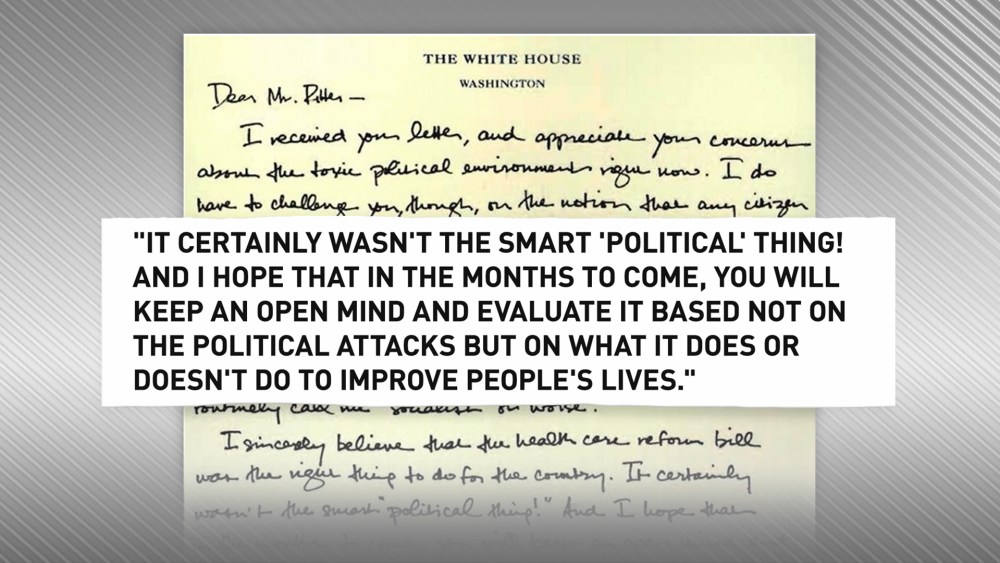 THE WHITE HOUSE
WASHINGTON
Dear Mr. Ritter —
I received your letter, and appreciate your concerns
about the toxic political environment right now. I do
have to challenge you, though, on the notion that any citizen
"IT CERTAINLY WASN'T THE SMART 'POLITICAL' THING!
AND I HOPE THAT IN THE MONTHS TO COME, YOU WILL
KEEP AN OPEN MIND AND EVALUATE IT BASED NOT ON
THE POLITICAL ATTACKS BUT ON WHAT IT DOES OR
DOESN'T DO TO IMPROVE PEOPLE'S LIVES."
routinely call me socialist or worse.
I sincerely believe that the health care reform bill
was the right thing to do for the country. It certainly
wasn't the smart "political thing!" And I hope that